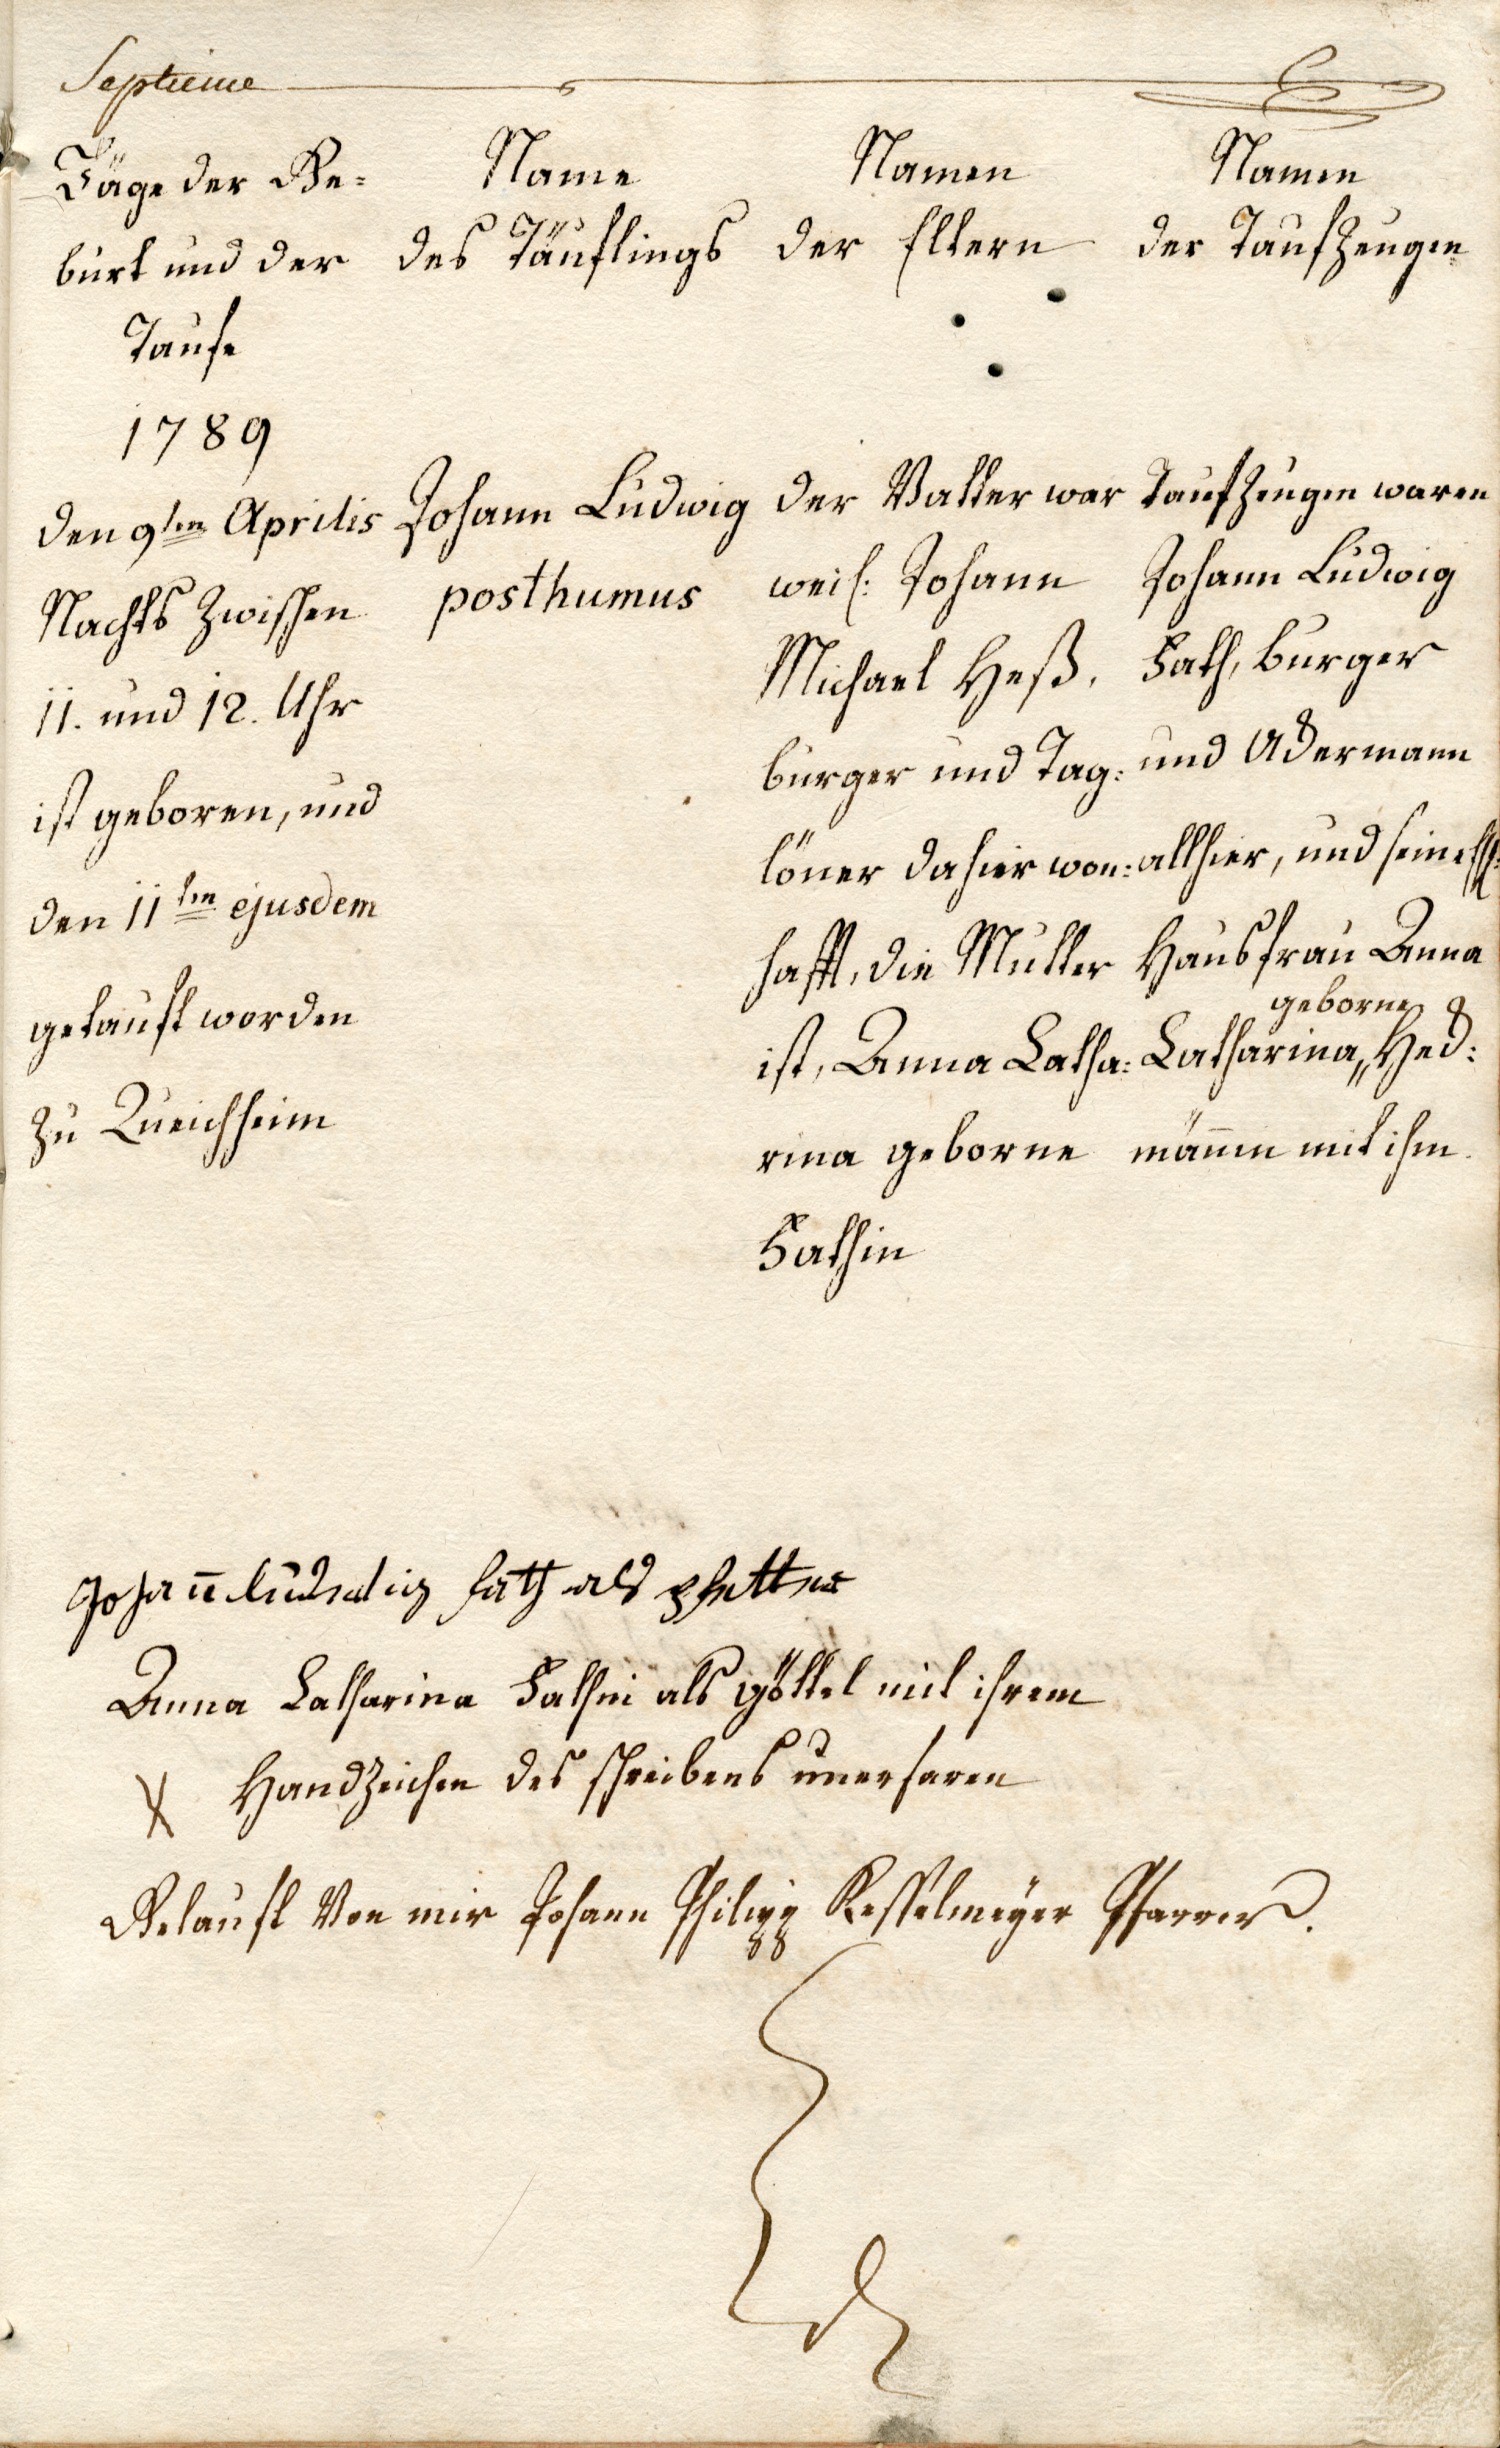 Septieme
Täge der Ge=
burt und der
Taufe
1789
den 9ten Aprilis
Nachts zwischen
11. und 12. Uhr
ist geboren, und
den 11ten ejusdem
getauft worden
zu Queichheim
Name
des Täuflings
Johann Ludwig
posthumus
Namen
der Eltern
der Vatter war
weil: Johann
Michael Heß,
burger und Tag:
löner dahier won:
hafft, die Mutter
ist, Anna Catha:
rina geborne
Fathin
Namen
der Taufzeugen
Taufzeugen waren
Johann Ludwig
Fath, burger
und Ackermann
allhier, und seine
Hausfrau Anna
geborne
Catharina,, Heck:
männin mit ihm.
Johann ludwig fath als pfetter
Anna Catharina Fathin als göttel mit ihrem
X Handzeichen des schreibens unerfaren
Getauft Von mir Johann Philipp Kesselmeyer Pfarrer.